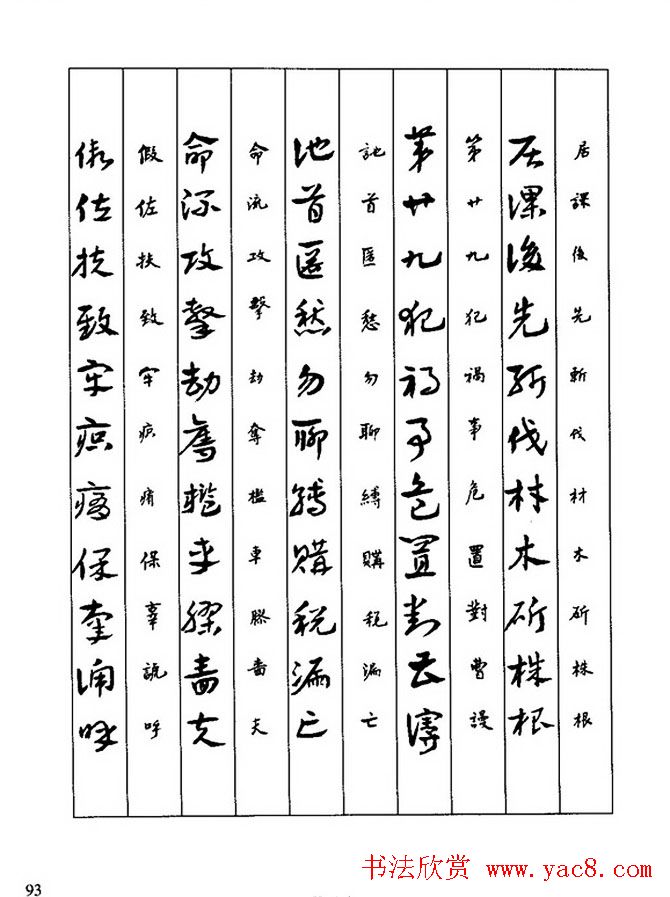 居課後先斬伐材木斫株根
居課後先斬伐材木斫株根
第廿九犯禍事危置對曹謾
第廿九犯禍事危置對曹謾
訑首匿愁勿聊縛購税漏亡
訑首匿愁勿聊縛購税漏亡
命流攻擊劫奪檻車膠嗇夫
命流攻擊劫奪檻車膠嗇夫
假佐扶致牢疻痏保辜謕呼
假佐扶致牢疻痏保辜謕呼
93
书法欣赏 www.yac8.com